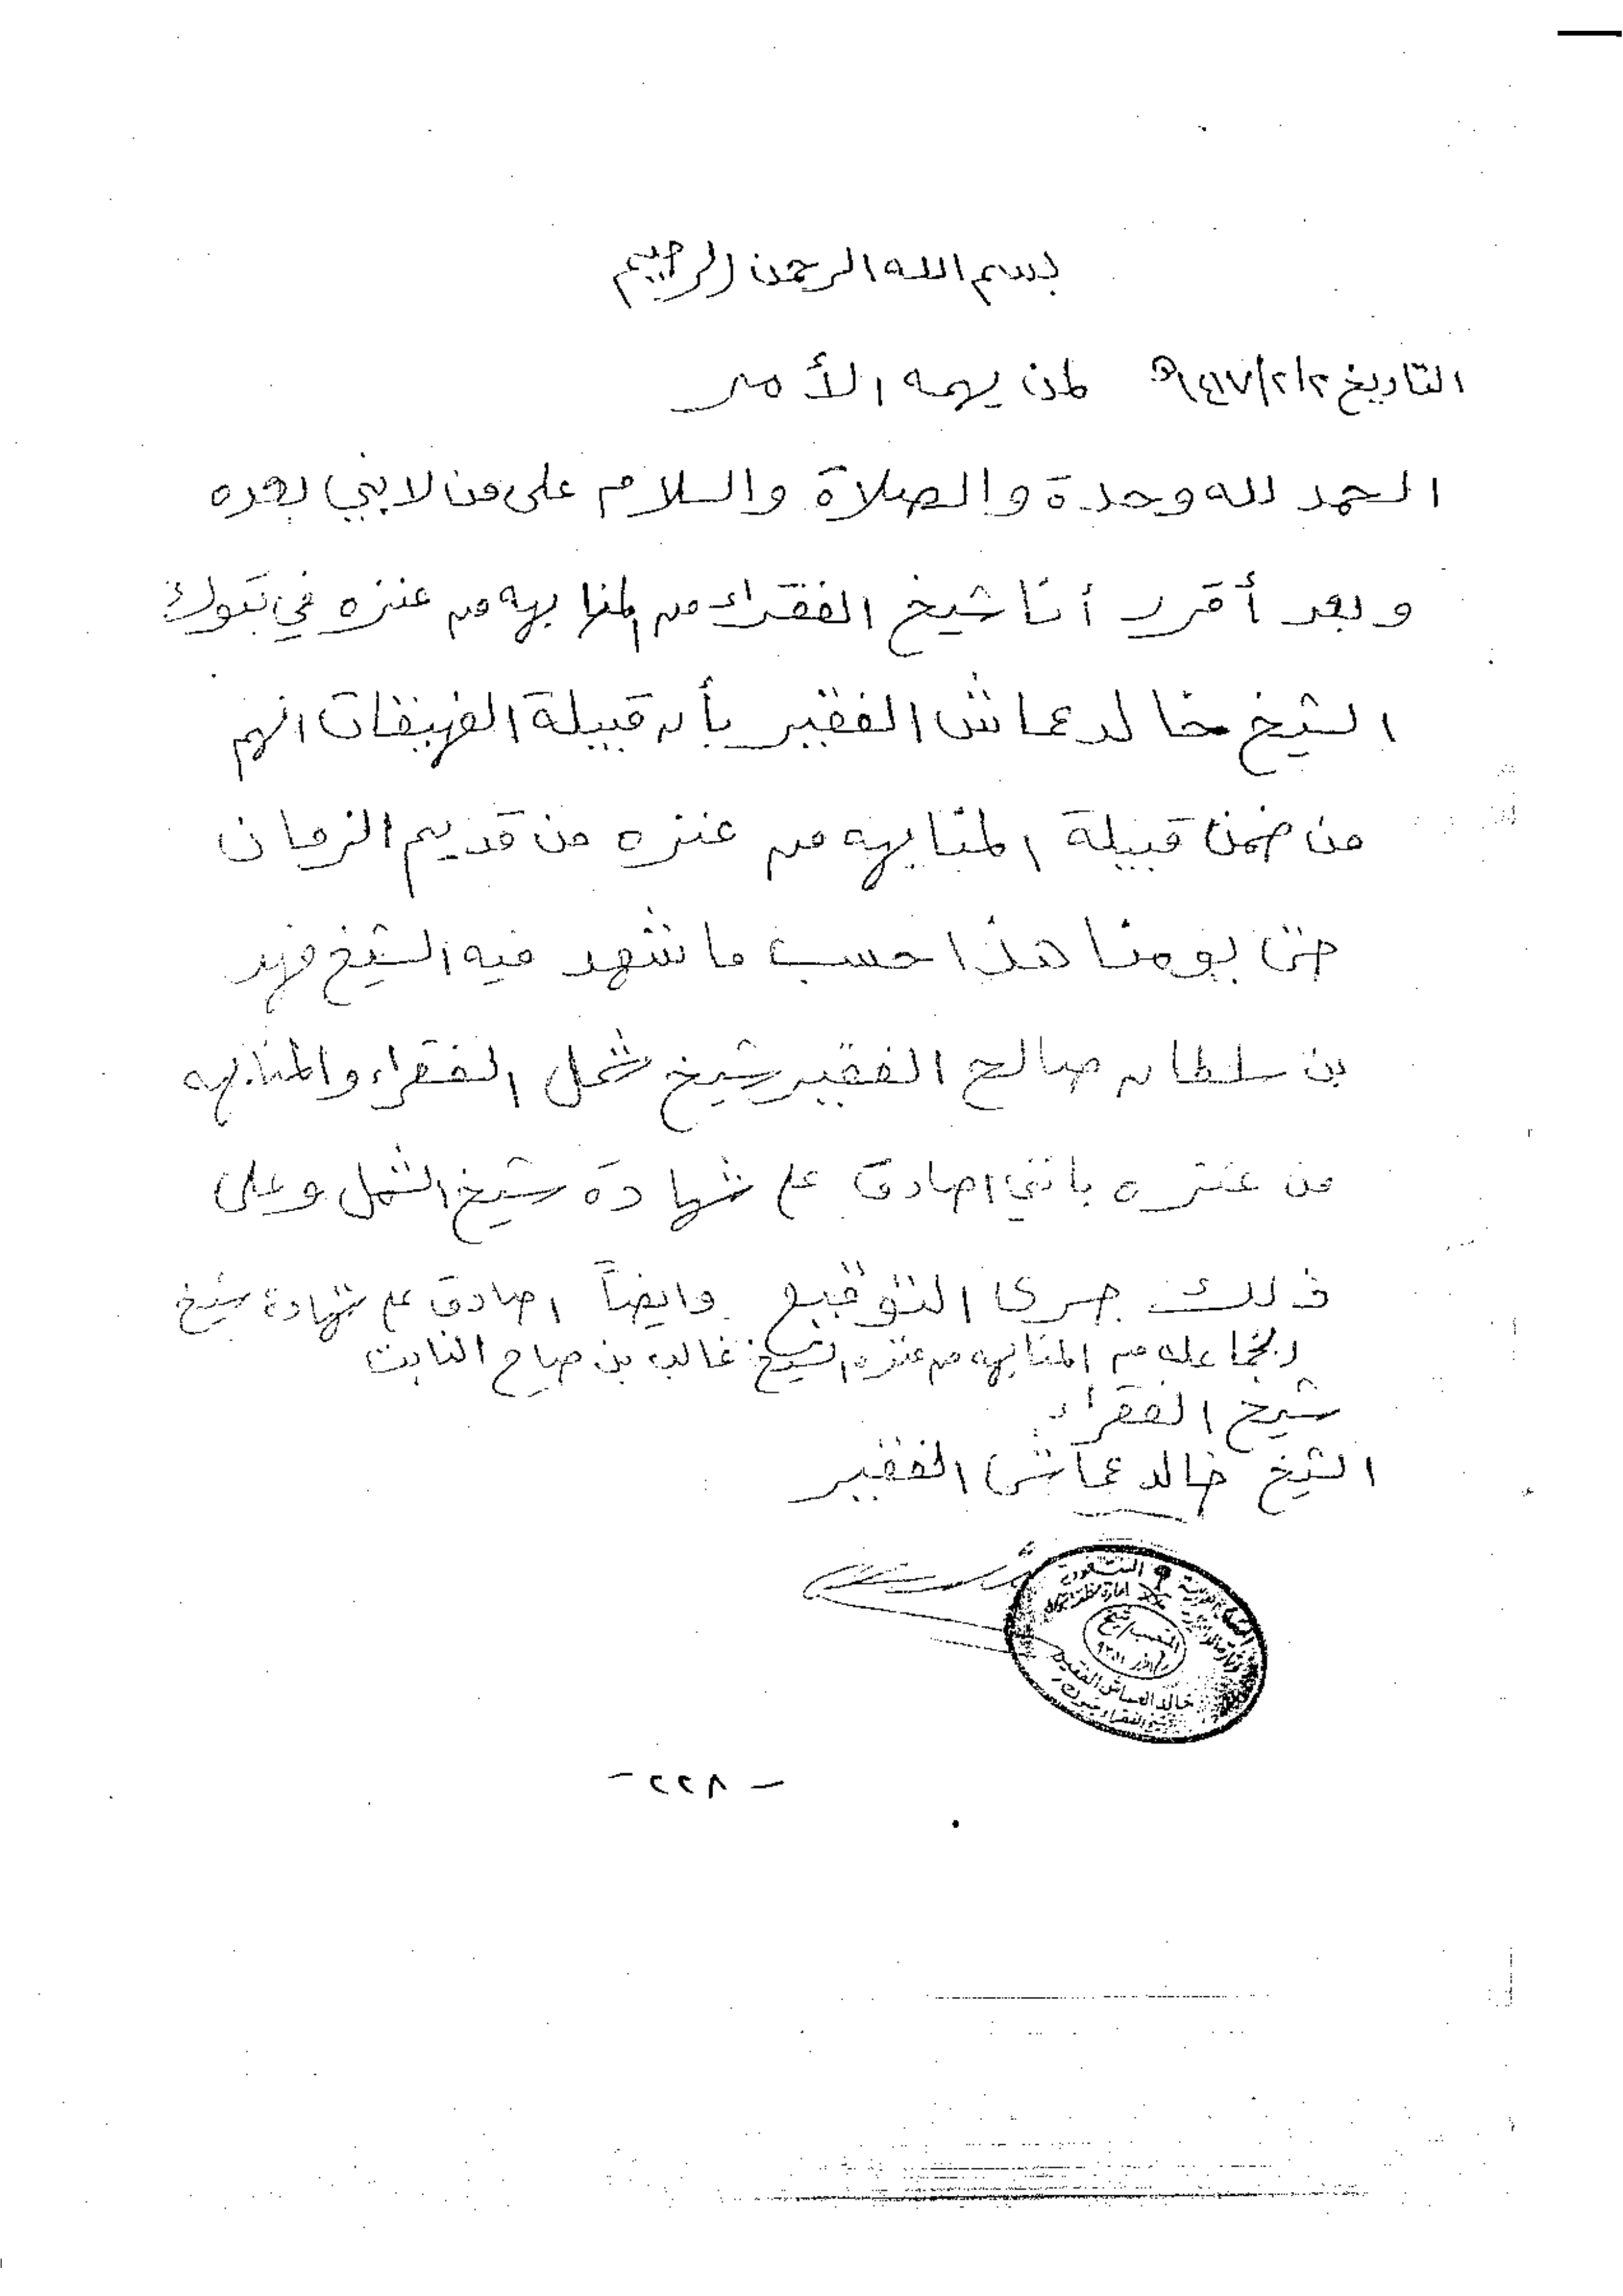 بسم الله الرحمن الرحيم
التاريخ ٢/٢/١٤١٧هـ لمن يهمه الأمر
الحمد لله وحدة والصلاة والسلام على من لا نبي بعده
وبعد أقرر أنا شيخ الفقراء من المنابهه من عنزه في تبوك
الشيخ خالد عماش الفقير بأن قبيلة الفهيقات انهم
من ضمن قبيلة المنابهه من عنزه من قديم الزمان
حتى يومنا هذا حسب ما شهد فيه الشيخ فهد
بن سلطان صالح الفقير شيخ شمل الفقراء والمنابهه
من عنزه بانني اصادق على شهادة شيخ الشمل وعلى
ذلك جرى التوقيع وايضاً اصادق على شهادة شيخ
المنابهه من عنزه الشيخ غالب بن صياح النابت
شيخ الفقراء
الشيخ خالد عماش الفقير
السعودية
خالد العماش الفقير
شيخ الفقراء بتبوك
- ٢٢٨ -